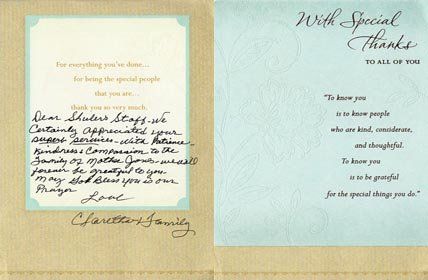 For everything you've done...
for being the special people
that you are...
thank you so very much.
Dear Shuler's Staff - We
Certainly Appreciated your
Superb Services - With Patience -
Kindness & Compassion to the
Family of Mother Jones - we will
forever be grateful to you
May God Bless You is our
Prayer
Love
Claretha & Family
With Special
Thanks
TO ALL OF YOU
"To know you
is to know people
who are kind, considerate,
and thoughtful.
To know you
is to be grateful
for the special things you do."